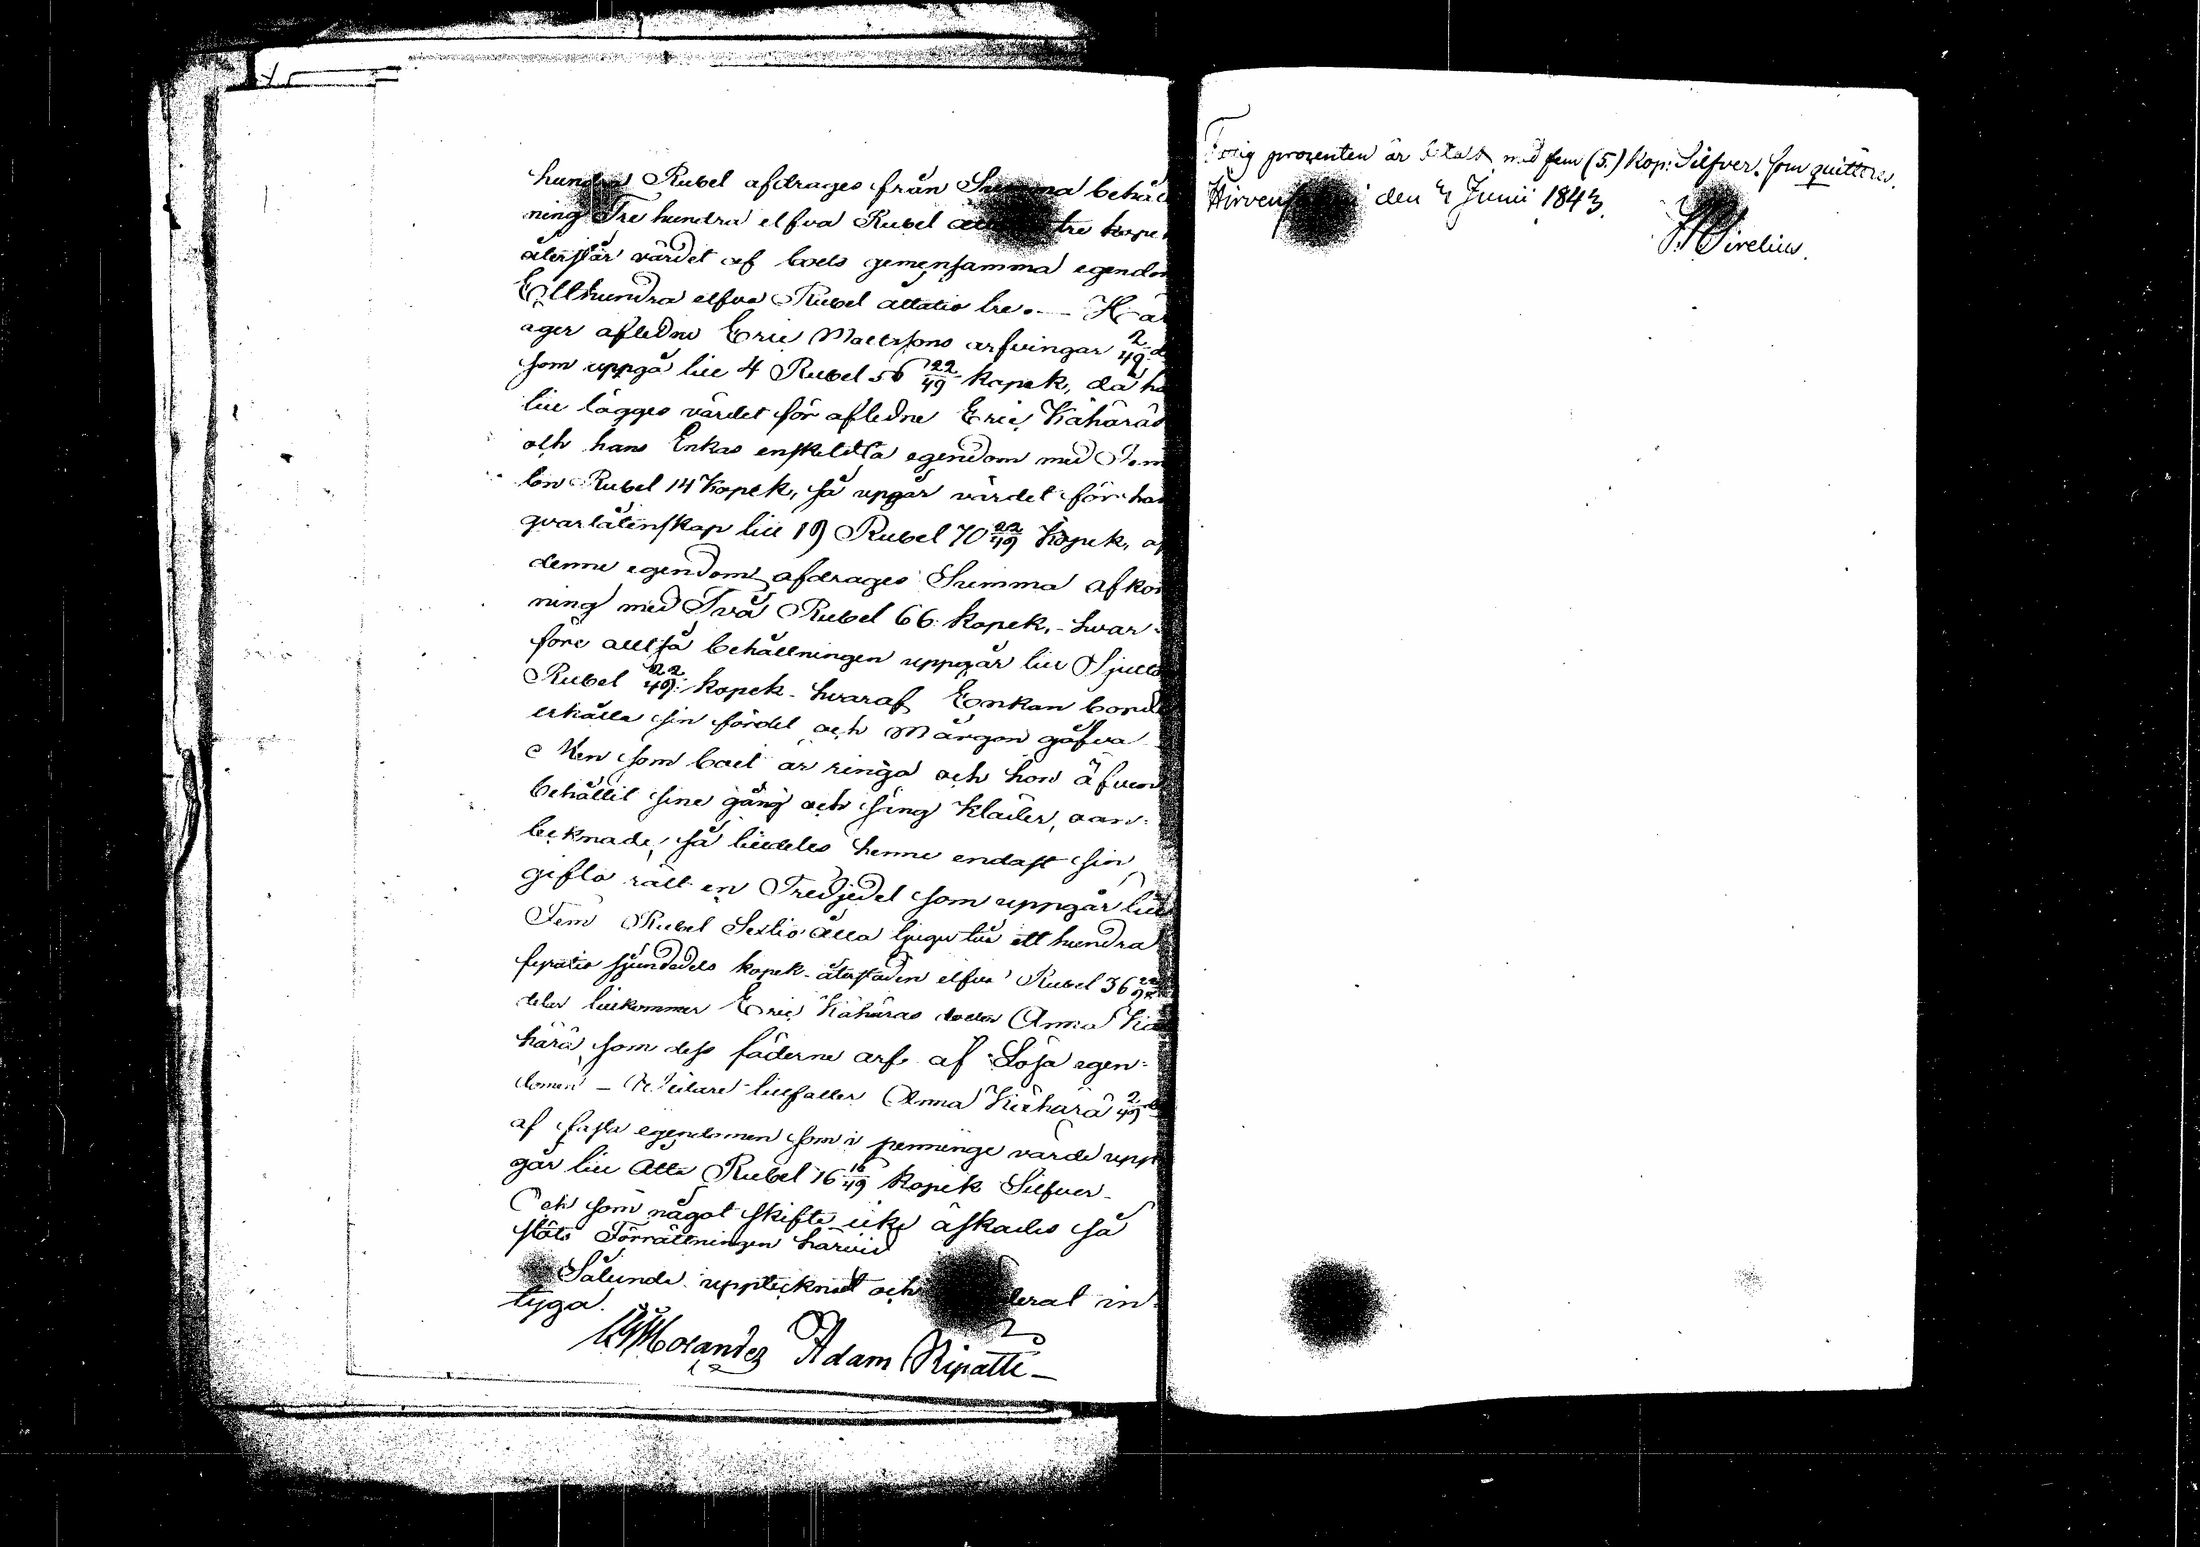 hundra Rubel afdrages från Summa behåll
ning Tre hundra elfva Rubel tre kopek
återstår värdet af boets gemensamma egendom
Etthundra elfva Rubel attatio tre. — Här
äger afledne Eric Mattssons arfvingar 2/49 de
som uppgå till 4 Rubel 56 22/49 kopek, då här
till lägges värdet för afledne Eric Kähäräs
och hans Enkas enskildta egendom med Fem
ton Rubel 14 Kopek, så upgår värdet för hans
qvarlåtenskap till 19 Rubel 70 22/49 Kopek, af
denne egendom afdrages Summa afkort
ning med Två Rubel 66 kopek, - hvar-
före alltså behållningen uppgår till Sjutto
Rubel 4 22/49 kopek - hvaraf Enkan borde
erhålla sin fördel och Morgon gåfva
Men som boet är ringa och hon äfven
behållit sine gång och säng kläder, oan-
tecknade, så tilldeles henne endast sin
gifto rätt en Tredjedel som uppgår till
Fem Rubel Sextio åtta tjugu två ett hundra
fyratio sjundedels kopek - återstoden elfva Rubel 36
delar tillkommer Eric Kähäräs dotter Anna Kä
härä som dess fäderne arf af Lösa egen-
domen - Vidare tillfaller Anna Kähärä 2/49 del
af fasta egendomen som i penninge värde upp
går till Åtta Rubel 16 16/49 kopek Silfver.
Och som något skifte icke äskades så
slöts Förrättningen härvid
Sålunde upptecknat och derat in-
tyga.
Molander Adam Ripatti
Fattig procenten är betalt med fem (5) Kop: Silfver. som quitteras.
den 4 Junii 1843.
Sirelius.